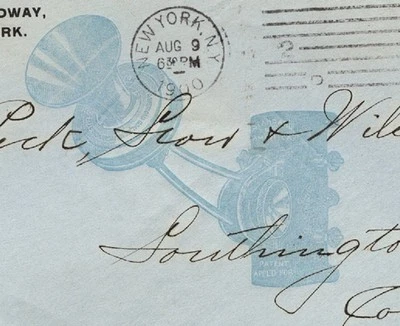 DWAY,
RK.
NEW YORK, N.Y.
AUG 9
6 30 PM
1900
Peck, Stow & Wil
Southington
Co
PATENT
APPLD FOR